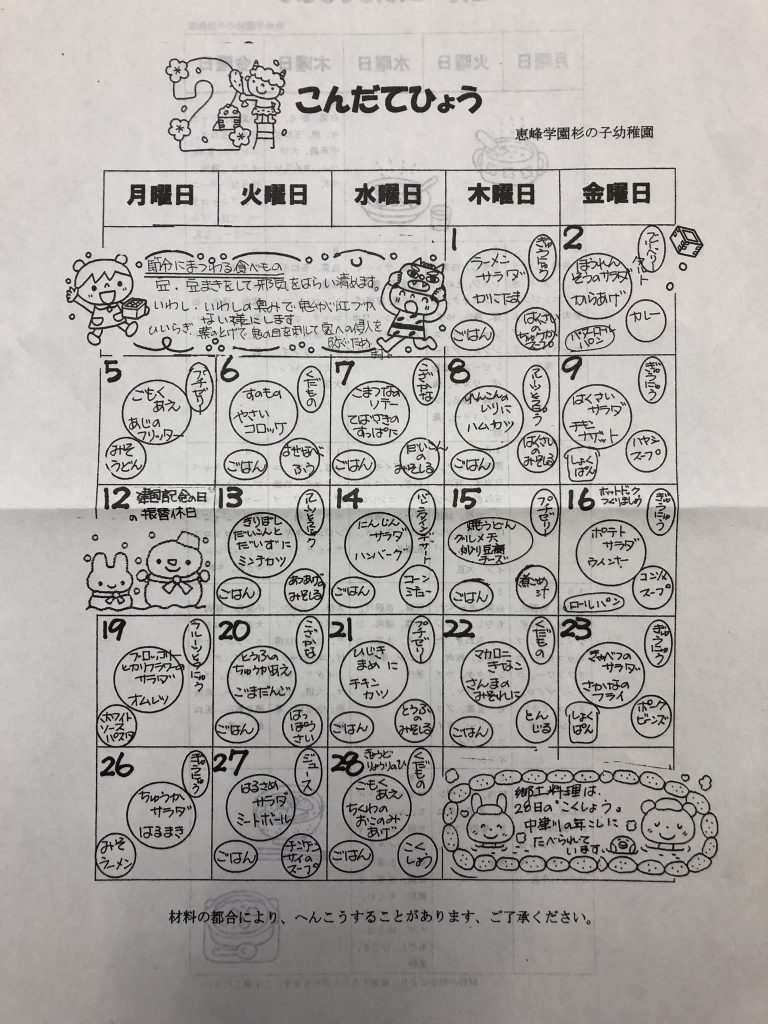 2
こんだてひょう
恵峰学園杉の子幼稚園
月曜日 火曜日 水曜日 木曜日 金曜日
節分にまつわる食べもの
豆・豆まきをして邪気をはらい清めます。
いわし・いわしの臭みで鬼が近づか
ない様にします
ひいらぎ・葉のとげで鬼の目を刺して家への侵入を
防ぐため
1
ぎゅうにゅう
ラーメン
サラダ
かにたま
ごはん
はくさい
の
スープ
2
タルト
ほうれん
そうのサラダ
からあげ
カレー
バターロール
パン
5
プチゼリー
ごもく
あえ
あじの
フリッター
みそ
うどん
6
くだもの
すのもの
やさい
コロッケ
ごはん
7
こざかな
こまつなの
ソテー
てばさきの
すっぱに
ごはん
だいこん
のみそしる
8
れんこんの
いりに
ハムカツ
ごはん
はくさい
のみそしる
9
ぎゅうにゅう
はくさい
サラダ
チキン
ナゲット
しょく
ぱん
ハヤシ
スープ
12
建国記念の日
の振替休日
13
きりぼし
だいこんと
だいずに
ミンチカツ
ごはん
あつあげの
みそしる
14
にんじん
サラダ
ハンバーグ
ごはん
コーン
シチュー
15
プチゼリー
焼うどん
グルメ天
炒り豆腐
チーズ
ごはん
煮ごめ
汁
16
ホットドック
つくりましょう
ぎゅうにゅう
ポテト
サラダ
ウィンナー
コンソメ
スープ
ロールパン
19
ブロッコリー
とカリフラワーの
サラダ
オムレツ
ホワイト
ソース
パスタ
20
こざかな
とうふの
ちゅうかあえ
ごまだんご
ごはん
はっ
ぽう
さい
21
プチゼリー
ひじき
まめに
チキン
カツ
ごはん
とうふ
の
みそしる
22
くだもの
マカロニ
きなこ
さんまの
みぞれに
ごはん
とん
じる
23
ぎゅうにゅう
きゃべつの
サラダ
さかなの
フライ
しょく
ぱん
ポーク
ビーンズ
26
ぎゅうにゅう
ちゅうか
サラダ
はるまき
みそ
ラーメン
27
ジュース
はるさめ
サラダ
ミートボール
ごはん
チンゲン
サイの
スープ
28
きょうど
りょうりのひ
くだもの
ごもく
あえ
ちくわの
おこのみ
あげ
ごはん
こく
しょう
郷土料理は、
28日の"こくしょう"。
中津川の年こしに
たべられて
います。
材料の都合により、へんこうすることがあります、ご了承ください。